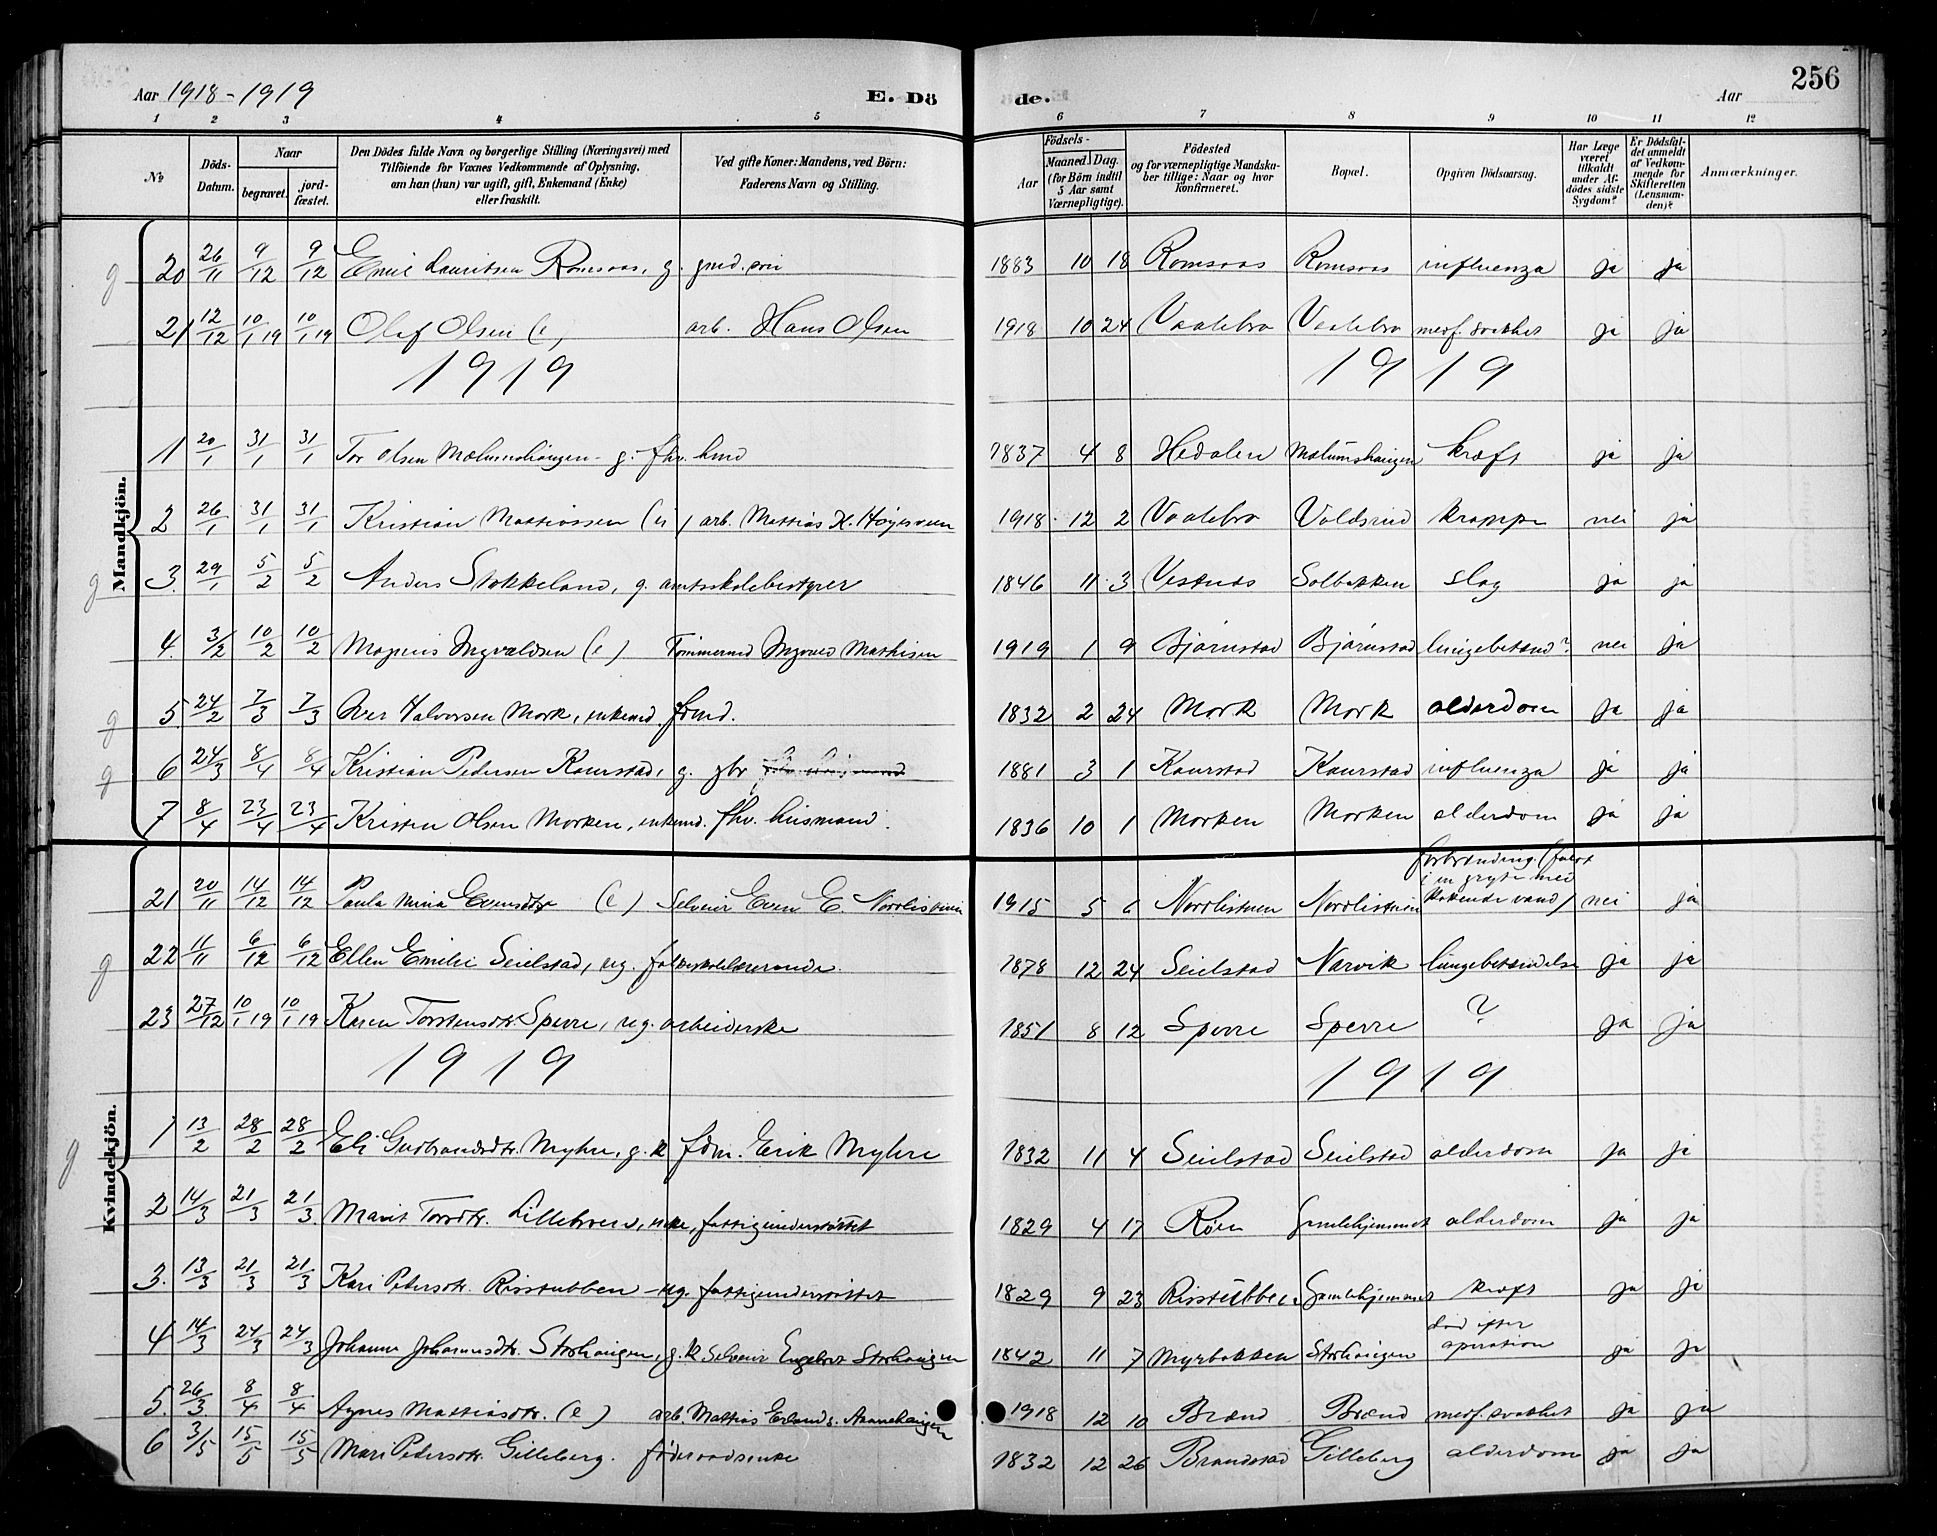 Aar 1918-1919 E. Dö de. Aar 256
1 2 3 4 5 6 7 8 9 10 11 12
№ Döds-Datum. Naar begravet. jord-fæstet. Den Dödes fulde Navn og borgerlige Stilling (Næringsvei) med Tilföiende for Voxnes Vedkommende af Oplysning, om han (hun) var ugift, gift, Enkemand (Enke) eller fraskilt. Ved gifte Koner: Mandens, ved Börn: Faderens Navn og Stilling. Födsels- Aar Maaned. Dag. (for Börn indtil 5 Aar samt Værnepligtige). Födested og for værnepligtige Mandskaber tillige: Naar og hvor konfirmeret. Bopæl. Opgiven Dödsaarsag. Har Læge været tilkaldt under Afdödes sidste Sygdom? Er Dödsfaldet anmeldt af Vedkommende for Skifteretten (Lensmanden)? Anmærkninger.
Mandkjön.
g 20 26/11 9/12 9/12 Emil Lauritsen Romsaas, g. 1883 10 18 Romsaas Romsaas influenza ja ja
21 12/12 10/1 19 10/1 19 Olaf Olsen (e) arb. Hans Olsen 1918 10 24 Vaalebro Vaalebro medf. svakhet ja ja
1919 1919
1 20/1 31/1 31/1 Tor Olsen Mælumshaugen - g. fhv. hmd 1837 4 8 Hedalen Mælumshaugen kræft ja ja
2 26/1 31/1 31/1 Kristian Mattiassen arb. Mattias K. 1918 12 2 Vaalebro krampe nei ja
g 3. 29/1 5/2 5/2 Anders Stokkeland, g. amtsskolebestyrer 1846 11 3 Vestnes Solbakken slag ja ja
4. 3/2 10/2 10/2 Magnus Ingvaldsen (e) Tømmermd Ingvald Mathisen 1919 1 9 Bjørnstad Bjørnstad lungebetænd? nei ja
g 5. 24/2 7/3 7/3 Iver Halvorsen Mork, enkemd. fdmd. 1832 2 24 Mork Mork alderdom ja ja
g 6 24/3 8/4 8/4 Kristian Pedersen Kaurstad, g. gbr 1881 3 1 Kaurstad Kaurstad influenza ja ja
7 8/4 23/4 23/4 Kristen Olsen Morken, enkemd. fhv. husmand. 1836 10 1 Morken Morken alderdom ja ja
Kvindekjön.
21 20/11 14/12 14/12 Paula Mina Evensdtr (e) Selveier Even E. Nordlistuen 1915 5 6 Nordlistuen Nordlistuen forbrænding (faldt i en gryte med kokende vand) nei ja
g 22 11/11 6/12 6/12 Ellen Emilie Seielstad, ug. folkeskolelærerinde. 1878 12 24 Seielstad Narvik lungebetændelse ja ja
23 27/12 10/1 19 10/1 19 Karen Torstensdtr. Sperre, ug. arbeiderske 1851 8 12 Sperre Sperre ? ja ja
1919 1919
g 1 13/2 28/2 28/2 Eli Gudbrandsdtr. Myhre, g. k fdm. Erik Myhre 1832 11 4 Seielstad Seielstad alderdom ja ja
2 14/3 21/3 21/3 Marit Torsdtr. Lillebroen, enke, fattigunderstøttet 1829 4 17 Røen Gamlehjemmet alderdom ja ja
3. 13/3 21/3 21/3 Kari Pedersdtr. Risstubben - ug. fattigunderstøttet 1829 9 23 Risstubben Gamlehjemmet kræft ja ja
4 14/3 24/3 24/3 Johanne Johannesdtr. Storhaugen, g. k Selveier Engebret Storhaugen 1842 11 7 Myrbakken Storhaugen død efter operation ja ja
5. 26/3 8/4 8/4 Agnes Mattiasdtr. (e) arb. Mattias Erlands. 1918 12 10 Brænd Brænd medf. svakhet ja ja
6 3/5 15/5 15/5 Mari Pedersdtr. Gilleberg. føderaadsenke 1832 12 26 Brandstad Gilleberg alderdom ja ja